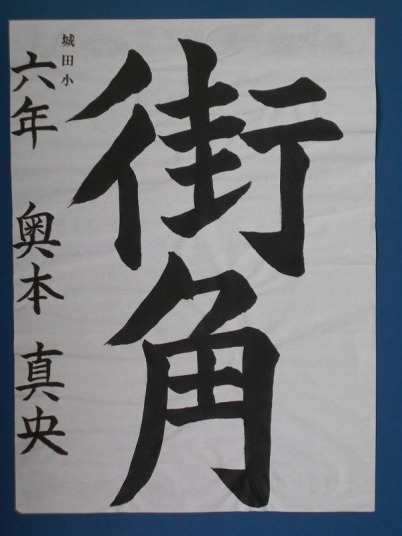 街角
城田小
六年 奥本 真央